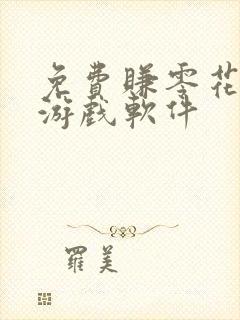 免費賺零花
游戲軟件
羅美